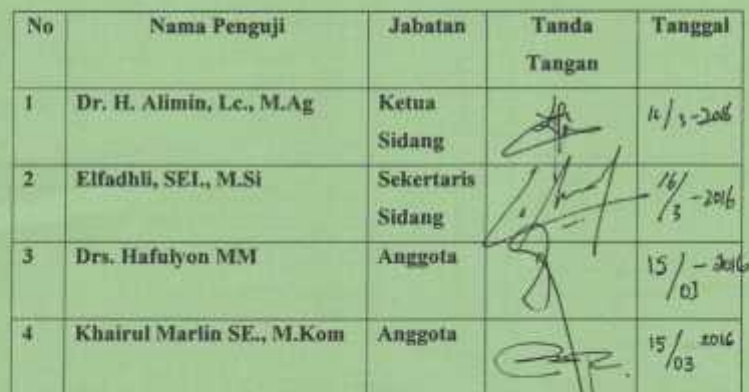 No Nama Penguji Jabatan Tanda Tangan Tanggal
1 Dr. H. Alimin, Lc., M.Ag Ketua Sidang
2 Elfadhli, SEI., M.Si Sekertaris Sidang 16/3-2016
3 Drs. Hafulyon MM Anggota 15/03-2016
4 Khairul Marlin SE., M.Kom Anggota 15/03 2016